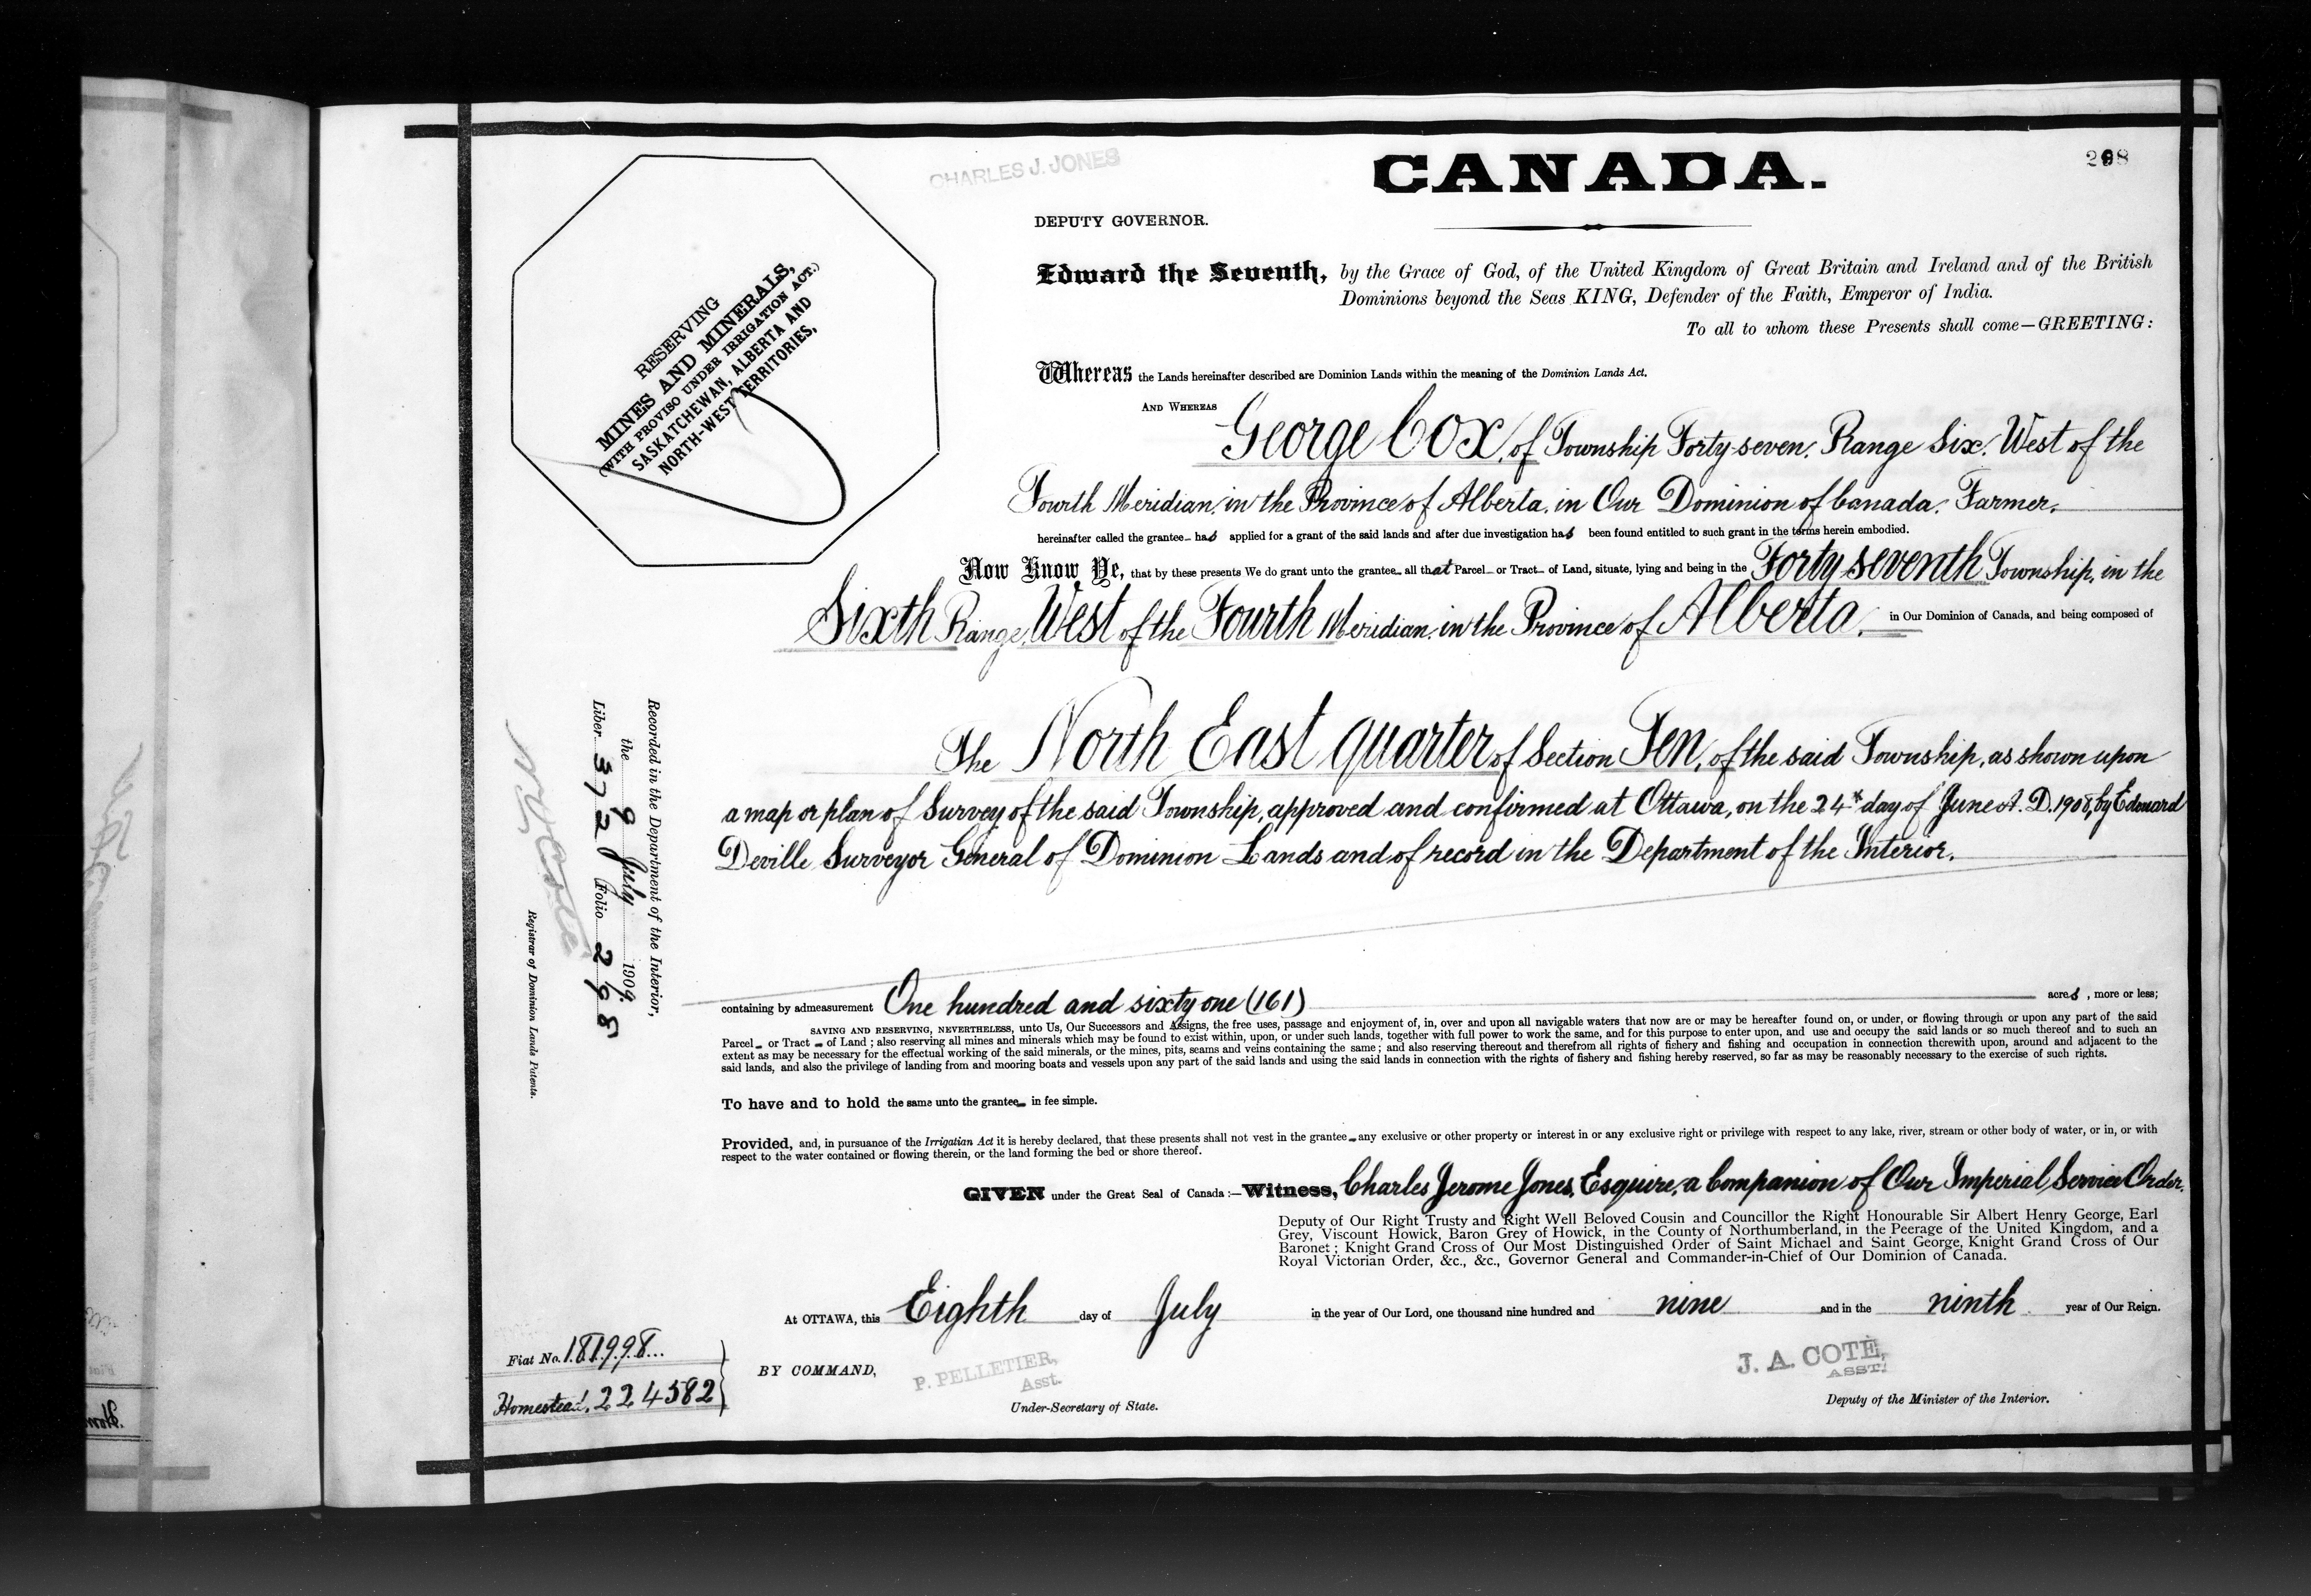 CHARLES J. JONES
CANADA.
298
DEPUTY GOVERNOR.
RESERVING
MINES AND MINERALS,
(WITH PROVISO UNDER IRRIGATION ACT.)
SASKATCHEWAN, ALBERTA AND
NORTH-WEST TERRITORIES,
Edward the Seventh, by the Grace of God, of the United Kingdom of Great Britain and Ireland and of the British
Dominions beyond the Seas KING, Defender of the Faith, Emperor of India.
To all to whom these Presents shall come—GREETING:
Whereas the Lands hereinafter described are Dominion Lands within the meaning of the Dominion Lands Act.
AND WHEREAS George Cox, of Township Forty-seven, Range Six, West of the
Fourth Meridian, in the Province of Alberta, in Our Dominion of Canada, Farmer,
hereinafter called the grantee has applied for a grant of the said lands and after due investigation has been found entitled to such grant in the terms herein embodied.
Now Know Ye, that by these presents We do grant unto the grantee all that Parcel or Tract of Land, situate, lying and being in the Forty seventh Township, in the
Sixth Range, West of the Fourth Meridian, in the Province of Alberta, in Our Dominion of Canada, and being composed of
The North East quarter of Section Ten, of the said Township, as shown upon
a map or plan of Survey of the said Township, approved and confirmed at Ottawa, on the 24th day of June A. D. 1908, by Edouard
Deville Surveyor General of Dominion Lands and of record in the Department of the Interior.
Recorded in the Department of the Interior,
the 9 July 1909.
Liber 372 Folio 298
Registrar of Dominion Lands Patents.
containing by admeasurement One hundred and sixty one (161) acres, more or less;
SAVING AND RESERVING, NEVERTHELESS, unto Us, Our Successors and Assigns, the free uses, passage and enjoyment of, in, over and upon all navigable waters that now are or may be hereafter found on, or under, or flowing through or upon any part of the said
Parcel or Tract of Land; also reserving all mines and minerals which may be found to exist within, upon, or under such lands, together with full power to work the same, and for this purpose to enter upon, and use and occupy the said lands or so much thereof and to such an
extent as may be necessary for the effectual working of the said minerals, or the mines, pits, seams and veins containing the same; and also reserving thereout and therefrom all rights of fishery and fishing and occupation in connection therewith upon, around and adjacent to the
said lands, and also the privilege of landing from and mooring boats and vessels upon any part of the said lands and using the said lands in connection with the rights of fishery and fishing hereby reserved, so far as may be reasonably necessary to the exercise of such rights.
To have and to hold the same unto the grantee in fee simple.
Provided, and, in pursuance of the Irrigatian Act it is hereby declared, that these presents shall not vest in the grantee any exclusive or other property or interest in or any exclusive right or privilege with respect to any lake, river, stream or other body of water, or in, or with
respect to the water contained or flowing therein, or the land forming the bed or shore thereof.
GIVEN under the Great Seal of Canada:—Witness, Charles Jerome Jones, Esquire, a Companion of Our Imperial Service Order,
Deputy of Our Right Trusty and Right Well Beloved Cousin and Councillor the Right Honourable Sir Albert Henry George, Earl
Grey, Viscount Howick, Baron Grey of Howick, in the County of Northumberland, in the Peerage of the United Kingdom, and a
Baronet; Knight Grand Cross of Our Most Distinguished Order of Saint Michael and Saint George, Knight Grand Cross of Our
Royal Victorian Order, &c., &c., Governor General and Commander-in-Chief of Our Dominion of Canada.
At OTTAWA, this Eighth day of July in the year of Our Lord, one thousand nine hundred and nine and in the ninth year of Our Reign.
Fiat No. 181998
Homestead, 224582
BY COMMAND,
P. PELLETIER,
Asst.
Under-Secretary of State.
J. A. COTÉ,
ASST.
Deputy of the Minister of the Interior.